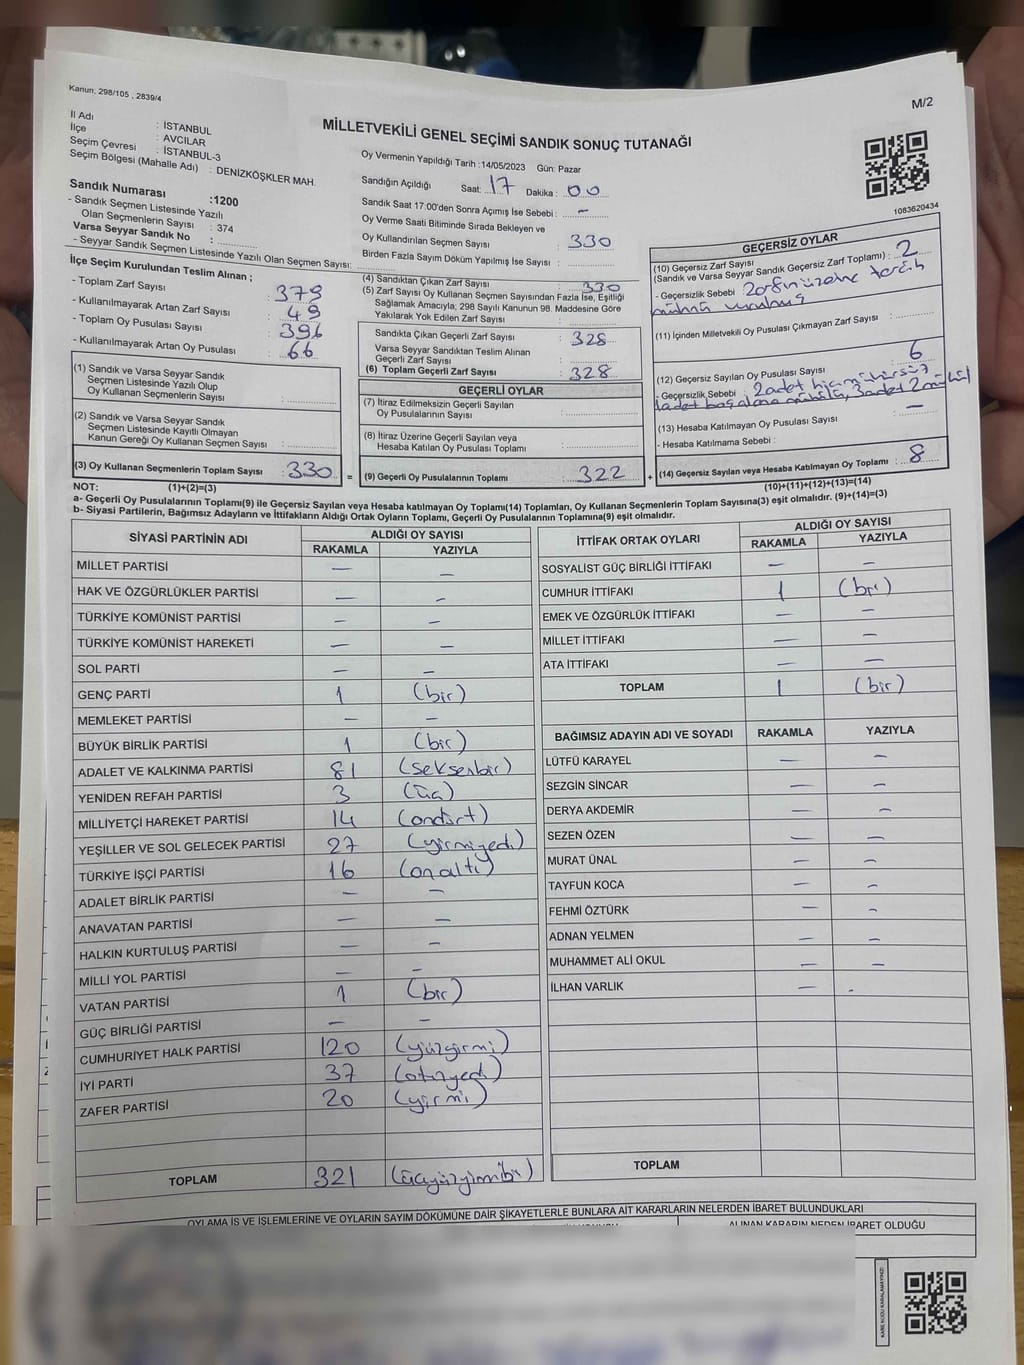 Kanun, 298/105 , 2839/4
M/2
MİLLETVEKİLİ GENEL SEÇİMİ SANDIK SONUÇ TUTANAĞI
İl Adı : İSTANBUL
İlçe : AVCILAR
Seçim Çevresi : İSTANBUL-3
Seçim Bölgesi (Mahalle Adı) : DENİZKÖŞKLER MAH.
Sandık Numarası :1200
- Sandık Seçmen Listesinde Yazılı
Olan Seçmenlerin Sayısı : 374
Varsa Seyyar Sandık No :
- Seyyar Sandık Seçmen Listesinde Yazılı Olan Seçmen Sayısı:
Oy Vermenin Yapıldığı Tarih :14/05/2023 Gün: Pazar
Sandığın Açıldığı Saat: 17 Dakika : 00
Sandık Saat 17:00'den Sonra Açımış İse Sebebi : -
Oy Verme Saati Bitiminde Sırada Bekleyen ve
Oy Kullandırılan Seçmen Sayısı : 330
Birden Fazla Sayım Döküm Yapılmış İse Sayısı :
1083620434
İlçe Seçim Kurulundan Teslim Alınan ;
- Toplam Zarf Sayısı : 379
- Kullanılmayarak Artan Zarf Sayısı : 49
- Toplam Oy Pusulası Sayısı : 396
- Kullanılmayarak Artan Oy Pusulası : 66
(1) Sandık ve Varsa Seyyar Sandık
Seçmen Listesinde Yazılı Olup
Oy Kullanan Seçmenlerin Sayısı :
(2) Sandık ve Varsa Seyyar Sandık
Seçmen Listesinde Kayıtlı Olmayan
Kanun Gereği Oy Kullanan Seçmen Sayısı :
(3) Oy Kullanan Seçmenlerin Toplam Sayısı : 330 =
(4) Sandıktan Çıkan Zarf Sayısı : 330
(5) Zarf Sayısı Oy Kullanan Seçmen Sayısından Fazla İse, Eşitliği
Sağlamak Amacıyla; 298 Sayılı Kanunun 98. Maddesine Göre
Yakılarak Yok Edilen Zarf Sayısı :
Sandıkta Çıkan Geçerli Zarf Sayısı : 328
Varsa Seyyar Sandıktan Teslim Alınan
Geçerli Zarf Sayısı :
(6) Toplam Geçerli Zarf Sayısı : 328
GEÇERLİ OYLAR
(7) İtiraz Edilmeksizin Geçerli Sayılan
Oy Pusulalarının Sayısı :
(8) İtiraz Üzerine Geçerli Sayılan veya
Hesaba Katılan Oy Pusulası Toplamı :
(9) Geçerli Oy Pusulalarının Toplamı : 322 +
GEÇERSİZ OYLAR
(10) Geçersiz Zarf Sayısı
(Sandık ve Varsa Seyyar Sandık Geçersiz Zarf Toplamı) : 2
- Geçersizlik Sebebi : 2 zarfın üzerine tercih
mührü
(11) İçinden Milletvekili Oy Pusulası Çıkmayan Zarf Sayısı :
(12) Geçersiz Sayılan Oy Pusulası Sayısı : 6
- Geçersizlik Sebebi : 2 adet hiç mühürsüz
1 adet boş alana mühürlü, 3 adet 2 mühür
(13) Hesaba Katılmayan Oy Pusulası Sayısı : -
- Hesaba Katılmama Sebebi :
(14) Geçersiz Sayılan veya Hesaba Katılmayan Oy Toplamı : 8
NOT: (1)+(2)=(3)
(10)+(11)+(12)+(13)=(14)
a- Geçerli Oy Pusulalarının Toplamı(9) ile Geçersiz Sayılan veya Hesaba katılmayan Oy Toplamı(14) Toplamları, Oy Kullanan Seçmenlerin Toplam Sayısına(3) eşit olmalıdır. (9)+(14)=(3)
b- Siyasi Partilerin, Bağımsız Adayların ve İttifakların Aldığı Ortak Oyların Toplamı, Geçerli Oy Pusulalarının Toplamına(9) eşit olmalıdır.
SİYASİ PARTİNİN ADI ALDIĞI OY SAYISI
RAKAMLA YAZIYLA
MİLLET PARTİSİ - -
HAK VE ÖZGÜRLÜKLER PARTİSİ - -
TÜRKİYE KOMÜNİST PARTİSİ - -
TÜRKİYE KOMÜNİST HAREKETİ - -
SOL PARTİ - -
GENÇ PARTİ 1 (bir)
MEMLEKET PARTİSİ - -
BÜYÜK BİRLİK PARTİSİ 1 (bir)
ADALET VE KALKINMA PARTİSİ 81 (seksenbir)
YENİDEN REFAH PARTİSİ 3 (üç)
MİLLİYETÇİ HAREKET PARTİSİ 14 (ondört)
YEŞİLLER VE SOL GELECEK PARTİSİ 27 (yirmiyedi)
TÜRKİYE İŞÇİ PARTİSİ 16 (onaltı)
ADALET BİRLİK PARTİSİ - -
ANAVATAN PARTİSİ - -
HALKIN KURTULUŞ PARTİSİ - -
MİLLİ YOL PARTİSİ - -
VATAN PARTİSİ 1 (bir)
GÜÇ BİRLİĞİ PARTİSİ - -
CUMHURİYET HALK PARTİSİ 120 (yüzyirmi)
İYİ PARTİ 37 (otuzyedi)
ZAFER PARTİSİ 20 (yirmi)
TOPLAM 321 (üçyüzyirmibir)
İTTİFAK ORTAK OYLARI ALDIĞI OY SAYISI
RAKAMLA YAZIYLA
SOSYALIST GÜÇ BİRLİĞİ İTTİFAKI - -
CUMHUR İTTİFAKI 1 (bir)
EMEK VE ÖZGÜRLÜK İTTİFAKI - -
MİLLET İTTİFAKI - -
ATA İTTİFAKI - -
TOPLAM 1 (bir)
BAĞIMSIZ ADAYIN ADI VE SOYADI RAKAMLA YAZIYLA
LÜTFÜ KARAYEL - -
SEZGİN SİNCAR - -
DERYA AKDEMİR - -
SEZEN ÖZEN - -
MURAT ÜNAL - -
TAYFUN KOCA - -
FEHMİ ÖZTÜRK - -
ADNAN YELMEN - -
MUHAMMET ALİ OKUL - -
İLHAN VARLIK - -
TOPLAM
OYLAMA İŞ VE İŞLEMLERİNE VE OYLARIN SAYIM DÖKÜMÜNE DAİR ŞİKAYETLERLE BUNLARA AİT KARARLARIN NELERDEN İBARET BULUNDUKLARI
ALINAN KARARIN NEDEN İBARET OLDUĞU
KARE KODU KARALAMAYINIZ!